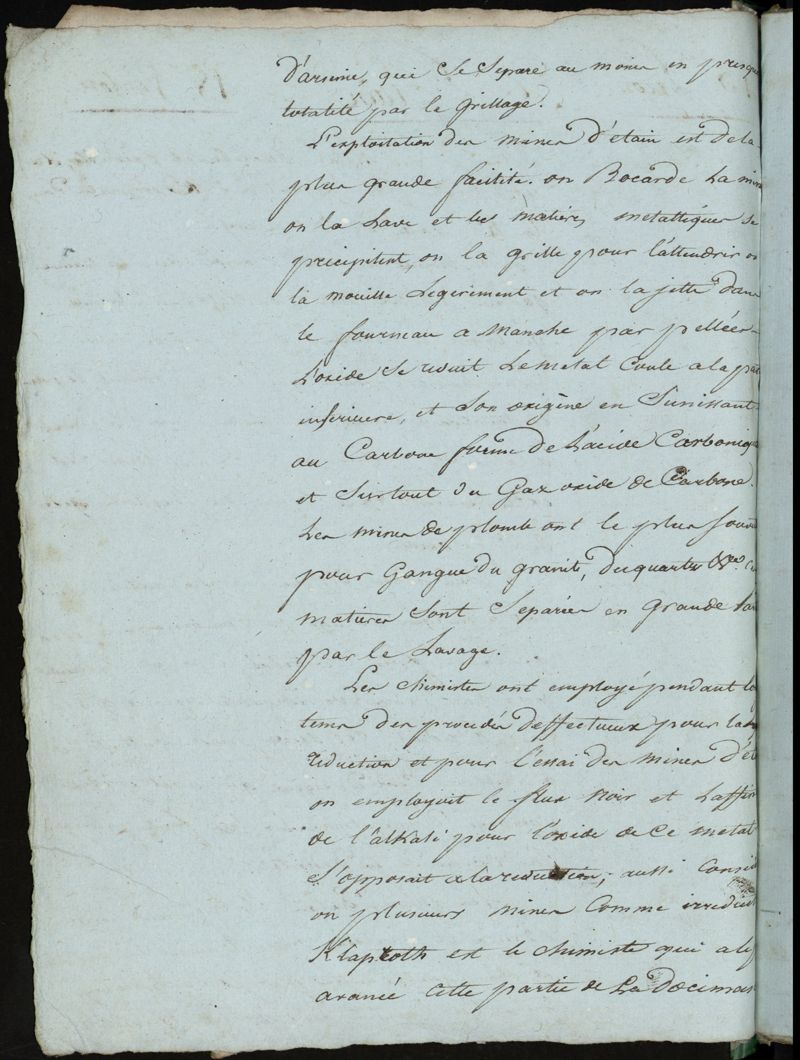 D'arsenic, qui Se Separe au moins en presque
totalité par le grillage.
L'exploitation des mines D'étain est De la
plus grande facilité. on Bocarde La mine
on la Lave et les matières metalliques se
precipitent, on la grille pour l'attendrir on
la mouille Legèrement et on la jette Dans
le fourneau a Manche par pellées
L'oxide Se reduit Le metal Coule a la par
inferieure, et Son oxigène en S'unissant
au Carbone forme De L'acide Carboniqu
et Surtout du Gaz oxide de Carbone.
Les mines de plomb ont le plus souv
pour Gangue du granit, du quartz &ca. Ces
matieres Sont Separées en Grande par
par le Lavage.
Les chimistes ont employé pendant lo
tems des procedés deffectueux pour la
reduction et pour l'essai Des mines D'ét
on employoit le flux Noir et L'affin
de l'alkali pour l'oxide de Ce metal
S'opposait a la reduction; aussi Consid
on plusieurs mines Comme irreduct
Klaproth est le chimiste qui a le p
avancé Cette partie de La Docimas